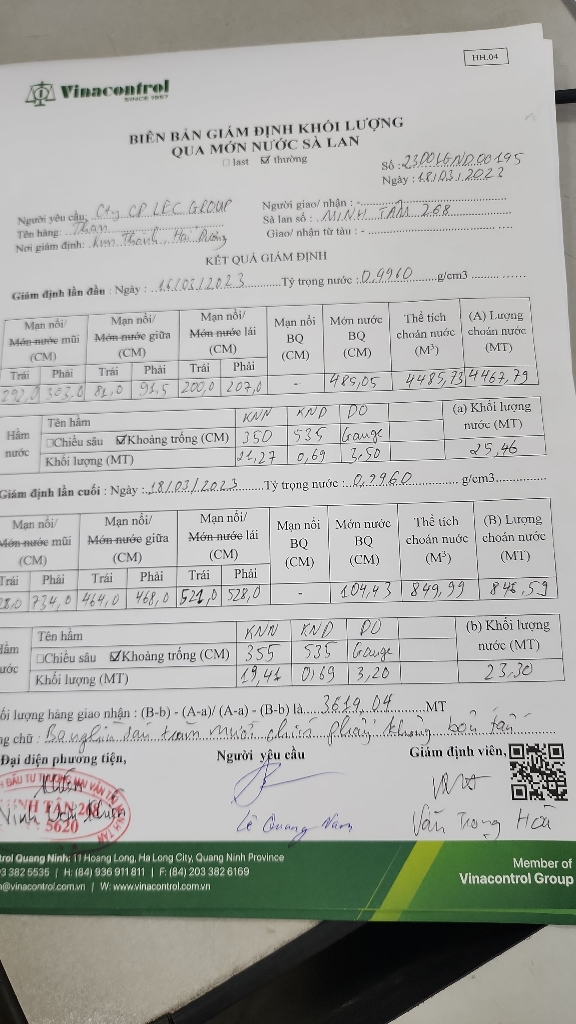 HH.04
Vinacontrol
SINCE 1957
BIÊN BẢN GIÁM ĐỊNH KHỐI LƯỢNG
QUA MỚN NƯỚC SÀ LAN
□ last ☑ thường
Số : 23D0LGND.00195
Ngày : 18/03/2023
Người yêu cầu: Cty CP LEC GROUP
Người giao/ nhận : -
Tên hàng: Than
Sà lan số : MINH TÂN 268
Nơi giám định: Kim Thành, Hải Dương
Giao/ nhận từ tàu : -
KẾT QUẢ GIÁM ĐỊNH
Giám định lần đầu : Ngày : 16/03/2023 Tỷ trọng nước : 0,9960 g/cm3
Mạn nổi/ Mớn nước mũi (CM) Mạn nổi/ Mớn nước giữa (CM) Mạn nổi/ Mớn nước lái (CM) Mạn nổi BQ (CM) Mớn nước BQ (CM) Thể tích choán nước (M³) (A) Lượng choán nước (MT)
Trái Phải Trái Phải Trái Phải
292,0 303,0 81,0 91,5 200,0 207,0 - 485,05 4485,73 4467,79
Hầm nước Tên hầm KNN KND DO (a) Khối lượng nước (MT)
□Chiều sâu ☑Khoảng trống (CM) 350 535 Gauge
Khối lượng (MT) 21,27 0,69 3,50 25,46
Giám định lần cuối : Ngày : 18/03/2023 Tỷ trọng nước : 0,9960 g/cm3
Mạn nổi/ Mớn nước mũi (CM) Mạn nổi/ Mớn nước giữa (CM) Mạn nổi/ Mớn nước lái (CM) Mạn nổi BQ (CM) Mớn nước BQ (CM) Thể tích choán nước (M³) (B) Lượng choán nước (MT)
Trái Phải Trái Phải Trái Phải
734,0 464,0 468,0 521,0 528,0 - 104,43 849,99 846,59
Hầm nước Tên hầm KNN KND DO (b) Khối lượng nước (MT)
□Chiều sâu ☑Khoảng trống (CM) 355 535 Gauge
Khối lượng (MT) 19,41 0,69 3,20 23,30
ối lượng hàng giao nhận : (B-b) - (A-a)/ (A-a) - (B-b) là 3619,04 MT
ng chữ : Ba nghìn sáu trăm mười chín phẩy không bốn tấn
Đại diện phương tiện, Người yêu cầu Giám định viên,
ĐẦU TƯ THƯƠNG MẠI VẬN TẢI
5620
Lê Quang Nam
Văn Trọng Hoà
trol Quang Ninh: 11 Hoang Long, Ha Long City, Quang Ninh Province
03 382 5535 | H: (84) 936 911 811 | F: (84) 203 382 6169
@vinacontrol.com.vn | W: www.vinacontrol.com.vn
Member of
Vinacontrol Group